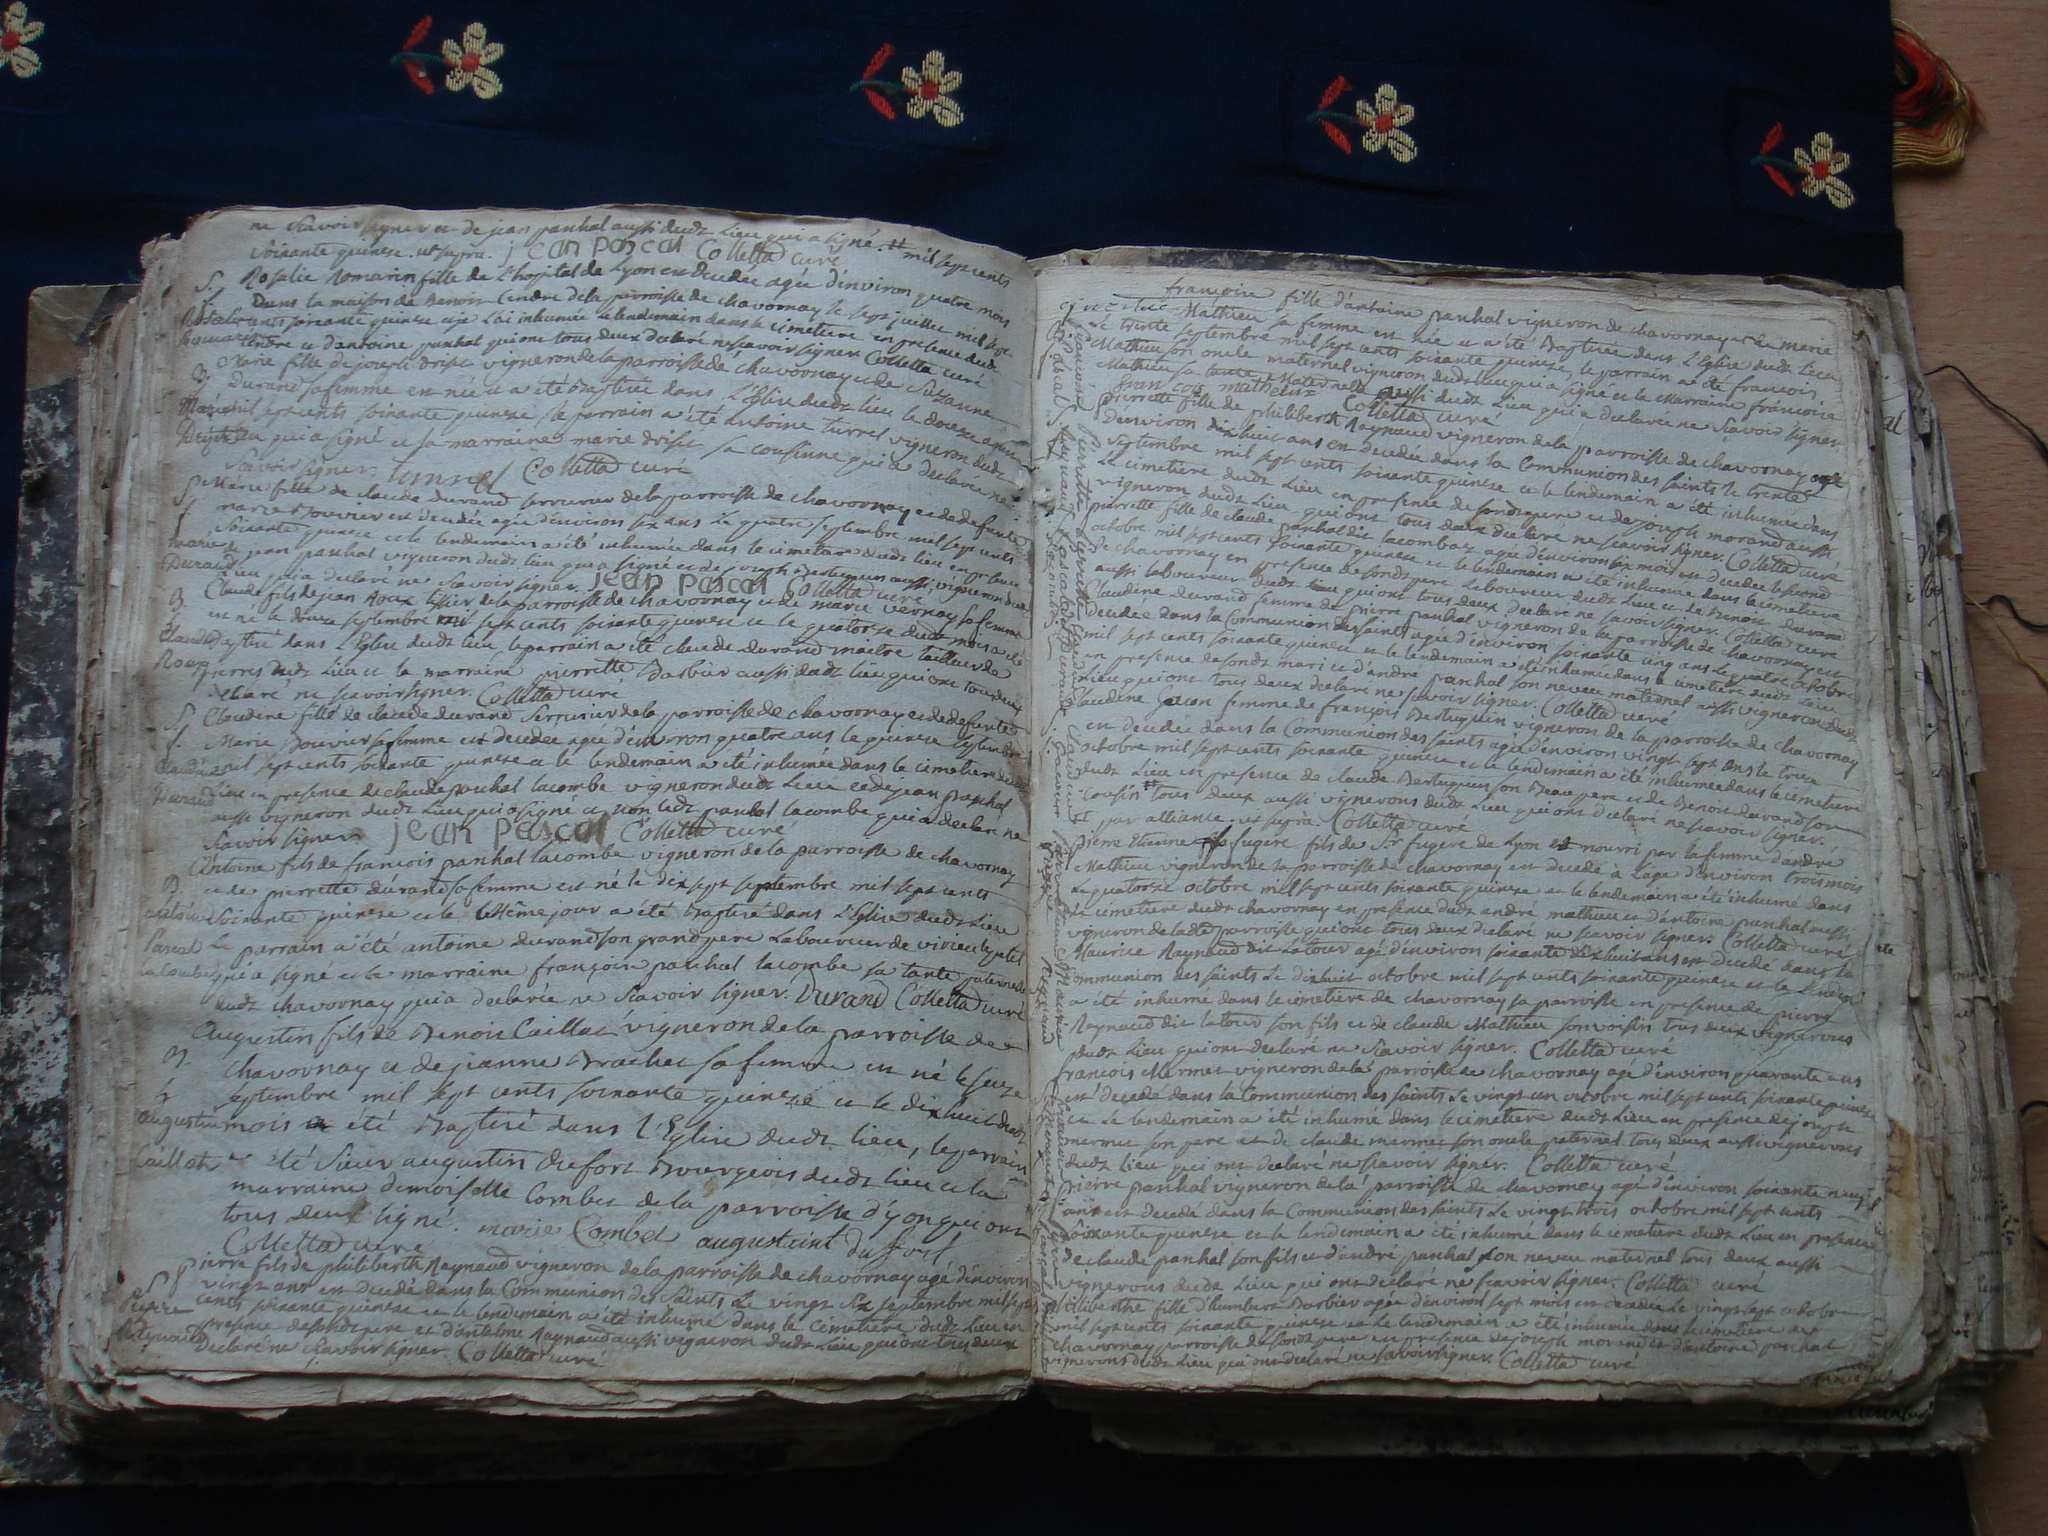 ne scavoir signer et de jean paschal aussi dudt Lieu qui a signé. mil sept cents
soixante quinze. ut supra. jean pascal Colletta curé
S. Rosalie Romarin fille de L'hopital de Lyon est decedée agée d'environ quatre mois
Dans la maison de Benoit Cendre de la parroisse de chavornay le sept juillet mil sept
Rosalie cents soixante quinze et je L'ai inhumée le lendemain dans le cimetiere en presence dudt
Cendre et d'antoine paschal qui ont tous deux declaré ne scavoir signer Colletta curé
Marie fille de joseph vigneron de la parroisse de chavornay et de Suzanne
B. Durand sa femme est née et a été Baptisée dans L'Eglise dudt lieu le douze aout
Marie mil sept cents soixante quinze le parrain a été antoine turrel vigneron dudt
lieu qui a signé et sa marraine marie sa cousinne qui a declaré ne
scavoir signer turrel Colletta curé
S. Marie fille de claude durand serrurier de la parroisse de chavornay et de defunte
marie Bouvier est decedée agée d'environ six ans Le quatre septembre mil sept cents
soixante quinze et le lendemain a été inhumée dans le cimetiere dudt lieu en presence
marie de jean paschal vigneron dudt lieu qui a signé et de aussi vigneron dudt
Durand Lieu qui a declaré ne scavoir signer. jean pascal Colletta curé
B. Claude fils de jean Roux tissier de la parroisse de chavornay et de marie vernay sa femme
est né le douze septembre mil sept cents soixante quinze et le quatorze dudt mois a été
Claude Baptisé dans L'Eglise dudt lieu, le parrain a été claude Durand maitre tailleur de
Roux pierres dudt Lieu et la marraine pierrette Barbier aussi dudt lieu qui ont tous deux
declaré ne scavoir signer. Colletta curé
S. Claudine fille de claude durand Serrurier de la parroisse de chavornay et de defunte
f. Marie Bouvier sa femme est decedée agée d'environ quatre ans le quinze septembre
Claudine mil sept cents soixante quinze et le lendemain a été inhumée dans le cimetiere dudt
Durand Lieu en presence de claude paschal lacombe vigneron dudt Lieu et de jean paschal
aussi vigneron dudt Lieu qui a signé et non ledt paschal lacombe qui a declaré ne
scavoir signer jean pascal Colletta curé
Antoine fils de francois paschal lacombe vigneron de la parroisse de chavornay
B. et de pierrette durand sa femme est né le dix sept septembre mil sept cents
antoine soixante quinze et le même jour a été Baptisé dans L'Eglise dudt Lieu
Pascal Le parrain a été antoine durand son grand pere Laboureur de virieu le petit
lacombe qui a signé et la marraine françoise paschal lacombe sa tante paternelle
dudt chavornay qui a declarée ne scavoir signer. Durand Colletta curé
Augustin fils de Benoit Caillat vigneron de la parroisse de
B. Chavornay et de jeanne Brachet sa femme est né le seize
septembre mil sept cents soixante quinze et le dix huit dudt
augustin mois a été Baptisé dans L'Eglise dudt lieu, le parrain
Caillat a été Sieur augustin Dufort Bourgeois dudt lieu et la
marraine demoiselle Combet de la parroisse d'yon qui ont
tous deux signé. marie Combet augustin dufort
Colletta curé
S. Pierre fils de philiberth Raynaud vigneron de la parroisse de chavornay agé d'environ
vingt ans est decedé dans la Communion des Saints Le vingt six septembre mil sept
Pierre cents soixante quinze et le lendemain a été inhumé dans le cimetiere dudt Lieu en
presence de sondt pere et d'antoine Raynaud aussi vigneron dudt Lieu qui ont tous deux
Raynaud declaré ne scavoir signer. Colletta curé
françoise fille d'antoine paschal vigneron de chavornay et de marie
Mathieu sa femme est née et a été Baptisée dans L'Eglise dudt Lieu
Le trente septembre mil sept cents soixante quinze, le parrain a été francois
Mathieu son oncle maternel vigneron dudt lieu qui a signé et la marraine françoise
Mathieu sa tante Maternelle aussi dudt Lieu qui a declarée ne scavoir signer
francois mathieu Colletta curé
pierrette fille de philiberth Raynaud vigneron de la parroisse de chavornay agée
d'environ dix huit ans est decedée dans la Communion des saints le trente
septembre mil sept cents soixante quinze et le lendemain a été inhumée dans
Le cimetiere dudt Lieu en presence de sondt pere et de joseph morand aussi
vigneron dudt Lieu qui ont tous deux declaré ne scavoir signer. Colletta curé
pierrette fille de claude paschal dit lacombaz agée d'environ six mois est decedée le second
octobre mil sept cents soixante quinze et le lendemain a été inhumée dans le cimetiere
de chavornay en presence de sondt pere Laboureur dudt Lieu et de Benoit durand
aussi laboureur dudt lieu qui ont tous deux declaré ne scavoir signer. Colletta curé
Claudine durand femme de pierre paschal vigneron de la parroisse de chavornay est
decedée dans la Communion des saints agée d'environ soixante cinq ans Le quatre octobre
mil sept cents soixante quinze et le lendemain a été inhumée dans le cimetiere dudt Lieu
en presence de sondt mari et d'andré paschal son neveu maternel aussi vigneron dudt
lieu qui ont tous deux declaré ne scavoir signer. Colletta curé
Claudine femme de françois Berthuguin vigneron de la parroisse de chavornay
est decedée dans la Communion des saints agée d'environ vingt sept ans le treize
octobre mil sept cents soixante quinze et le lendemain a été inhumée dans le cimetiere
dudt Lieu en presence de claude Berthuguin son Beau pere et de Benoit durand son
Cousin tous deux aussi vignerons dudt Lieu qui ont declaré ne scavoir signer.
par alliance. ut supra. Colletta curé
Pierre Etienne fugere fils de Sr fugere de Lyon nourri par la femme d'andré
Mathieu vigneron de la parroisse de chavornay est decedé à l'age d'environ trois mois
Le quatorze octobre mil sept cents soixante quinze et le lendemain a été inhumé dans
Le cimetiere dudt chavornay en presence dudt andré mathieu et d'antoine paschal aussi
vigneron de ladte parroisse qui ont tous deux declaré ne scavoir signer. Colletta curé
Maurice Raynaud dit Latour agé d'environ soixante dix huit ans est decedé dans la
Communion des saints Le dix huit octobre mil sept cents soixante quinze et le lendemain
a été inhumé dans le cimetiere de chavornay sa parroisse en presence de pierre
Raynaud dit latour son fils et de claude Mathieu son voisin tous deux vignerons
dudt Lieu qui ont declaré ne scavoir signer. Colletta curé
francois Mermet vigneron de la parroisse de chavornay agé d'environ quarante ans
est decedé dans la Communion des saints Le vingt un octobre mil sept cents soixante quinze
et Le lendemain a été inhumé dans le cimetiere dudt Lieu en presence de joseph
mermet son pere et de claude mermet son oncle paternel tous deux aussi vignerons
dudt Lieu qui ont declaré ne scavoir signer. Colletta curé
pierre paschal vigneron de la parroisse de chavornay agé d'environ soixante neuf
ans est decedé dans la Communion des saints Le vingt trois octobre mil sept cents
soixante quinze et le lendemain a été inhumé dans le cimetiere dudt Lieu en presence
de claude paschal son fils et d'andré paschal son neveu maternel tous deux aussi
vignerons dudt Lieu qui ont declaré ne scavoir signer. Colletta curé
philiberthe fille d'humbert Barbier agée d'environ sept mois est decedée Le vingt sept octobre
mil sept cents soixante quinze et le lendemain a été inhumée dans le cimetiere de
chavornay parroisse de sondt pere en presence de joseph morand et d'antoine paschal
vignerons dudt Lieu qui ont declaré ne scavoir signer. Colletta curé